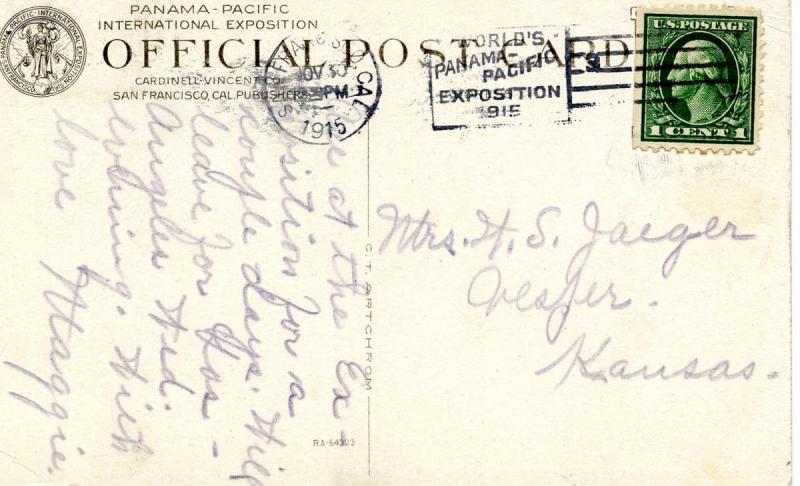 PANAMA-PACIFIC
INTERNATIONAL EXPOSITION
OFFICIAL POST CARD
CARDINELL-VINCENT CO.
SAN FRANCISCO, CAL. PUBLISHERS
NOV 30
PM
1915
CAL.
WORLD'S
PANAMA-
PACIFIC
EXPOSITION
1915
U.S. POSTAGE
1 CENT 1
at the Ex-
position for a
couple days. Will
leave for Los-
Angeles Wed.
evening. With
love Maggie.
Mrs. H. S. Jaeger
Vesper.
Kansas.
C. T. ARTCHROM
RA-54323